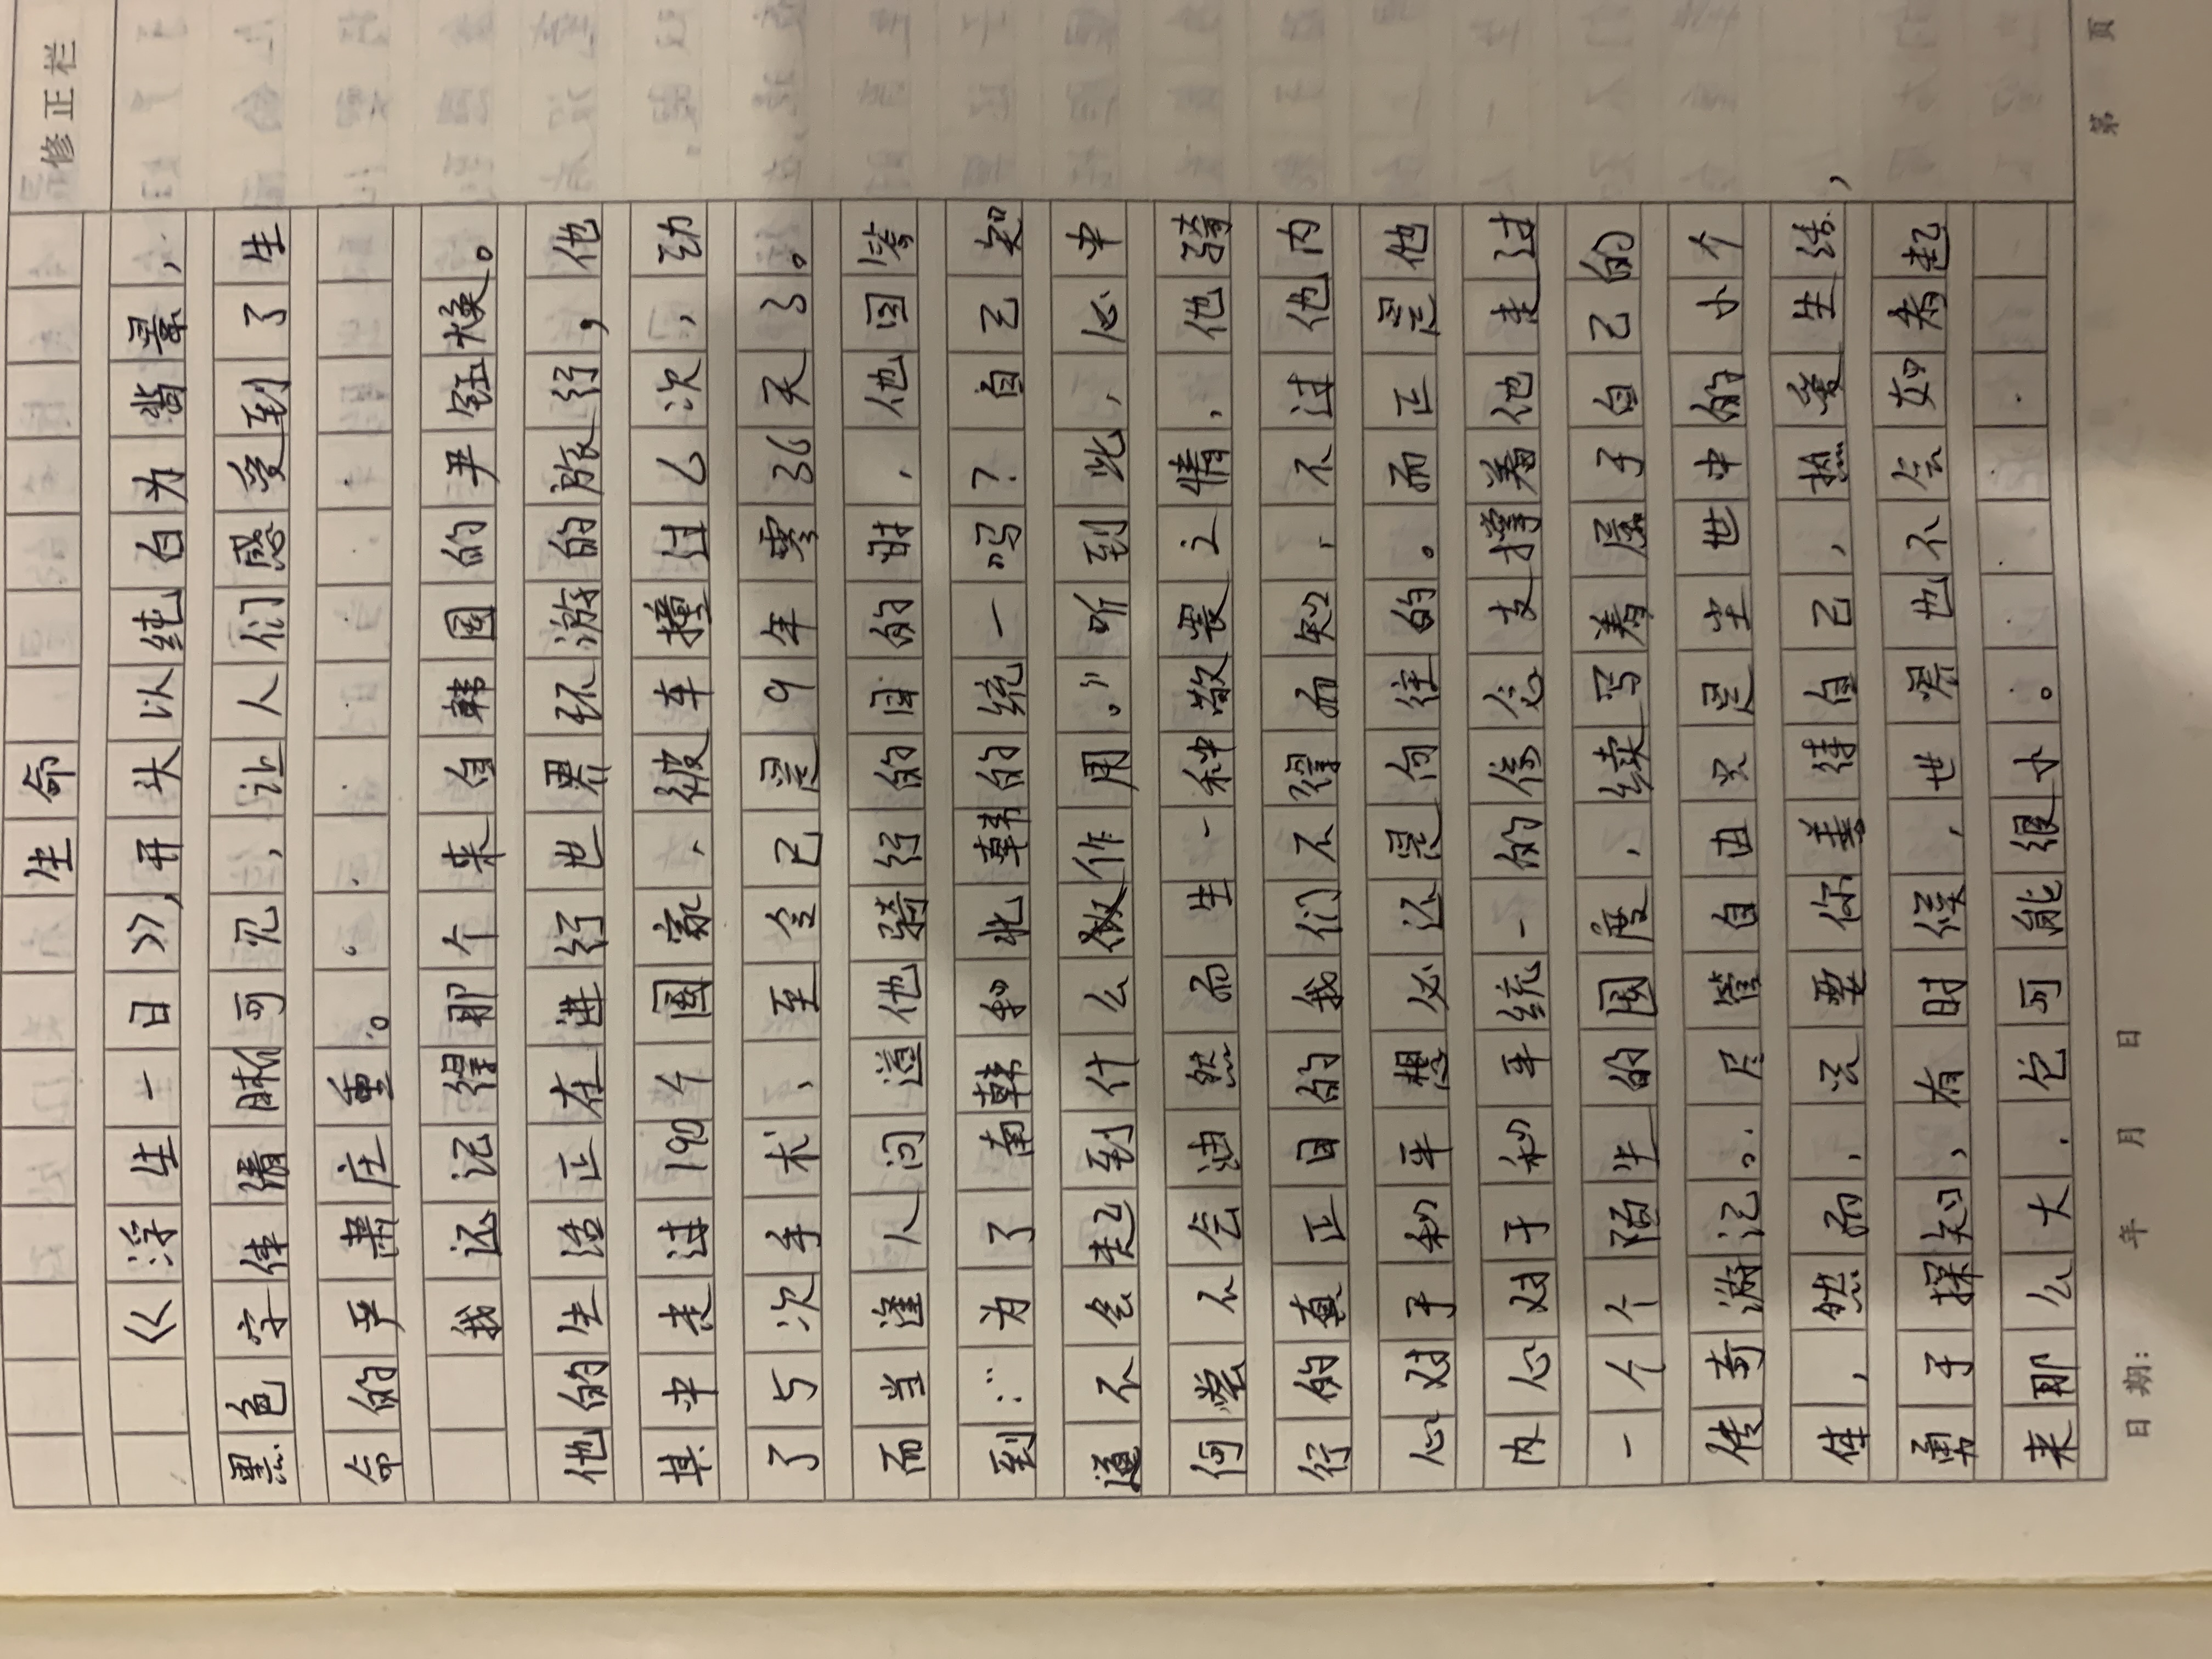 修正栏
生命
《浮生一日》，开头以纯白为背景，
黑色字体清晰可见，让人们感受到了生
命的严肃庄重。
我还记得那个来自韩国的尹钰焕。
他的生活正在进行世界环游的旅行，他
其中走过190个国家，被车撞过6次，动
了5次手术，至今已是9年零36天了。
而当逢人问道他骑行的目的时，他回答
到：“为了南韩和北韩的统一吗？自己知
道不会起到什么做作用。”听到此，心中
何尝不会油然而生一种敬畏之情，他骑
行的真正目的我们不得而知，不过他内
心对于和平想必还是向往的。而正是他
内心对于和平统一的信念支撑着他走过
一个个陌生的国度，续写着属于自己的
传奇游记。尽管自由只是尘世中的小介
体，然而，只要你善待自己，热爱生活，
勇于探知，有时候，世界也不会如看起
来那么大，它可能很小。
日期： 年 月 日
第 页